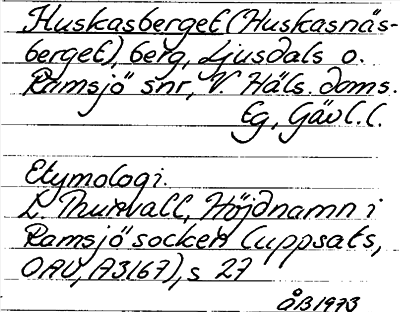 Huskasberget (Huskasnäs-
berget), berg, Ljusdals o.
Ramsjö snr, V. Häls. doms.
Eg, Gävl.l.
Etymologi.
L. Thunvall, Höjdnamn i
Ramsjö socken (uppsats,
OAU, A3167), s 27
ÅB 1973